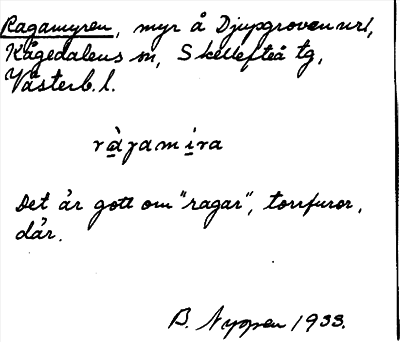 Ragamyren, myr å Djupgroven url,
Kågedalens sn, Skellefteå tg,
Västerb. l.
ràgamira
Det är gott om "ragar", torrfuror,
där.
B. Nyppen 1933.